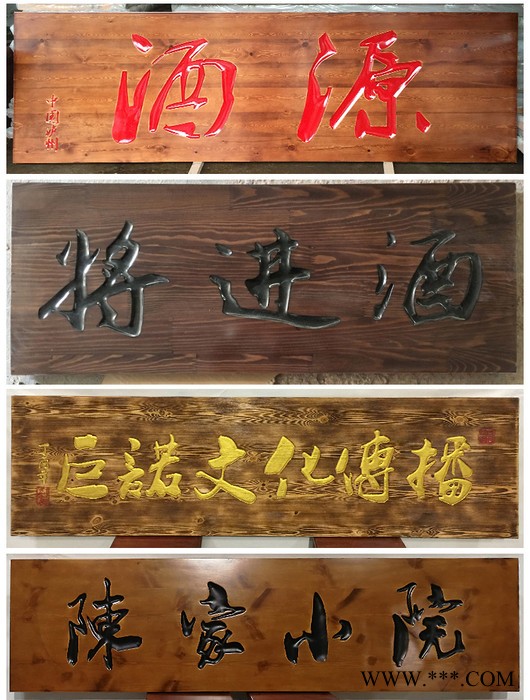 酒源
中国泸州
将进酒
巨諾文化傳播
陳家小院
WWW.***.COM